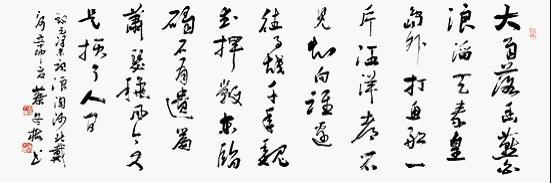 大雨落幽燕白
浪滔天秦皇
岛外打鱼船一
片汪洋都不
见知向谁边
往事越千年魏
武挥鞭东临
碣石有遗篇
萧瑟秋风今又
是换了人间
毛泽东词浪淘沙北戴
河